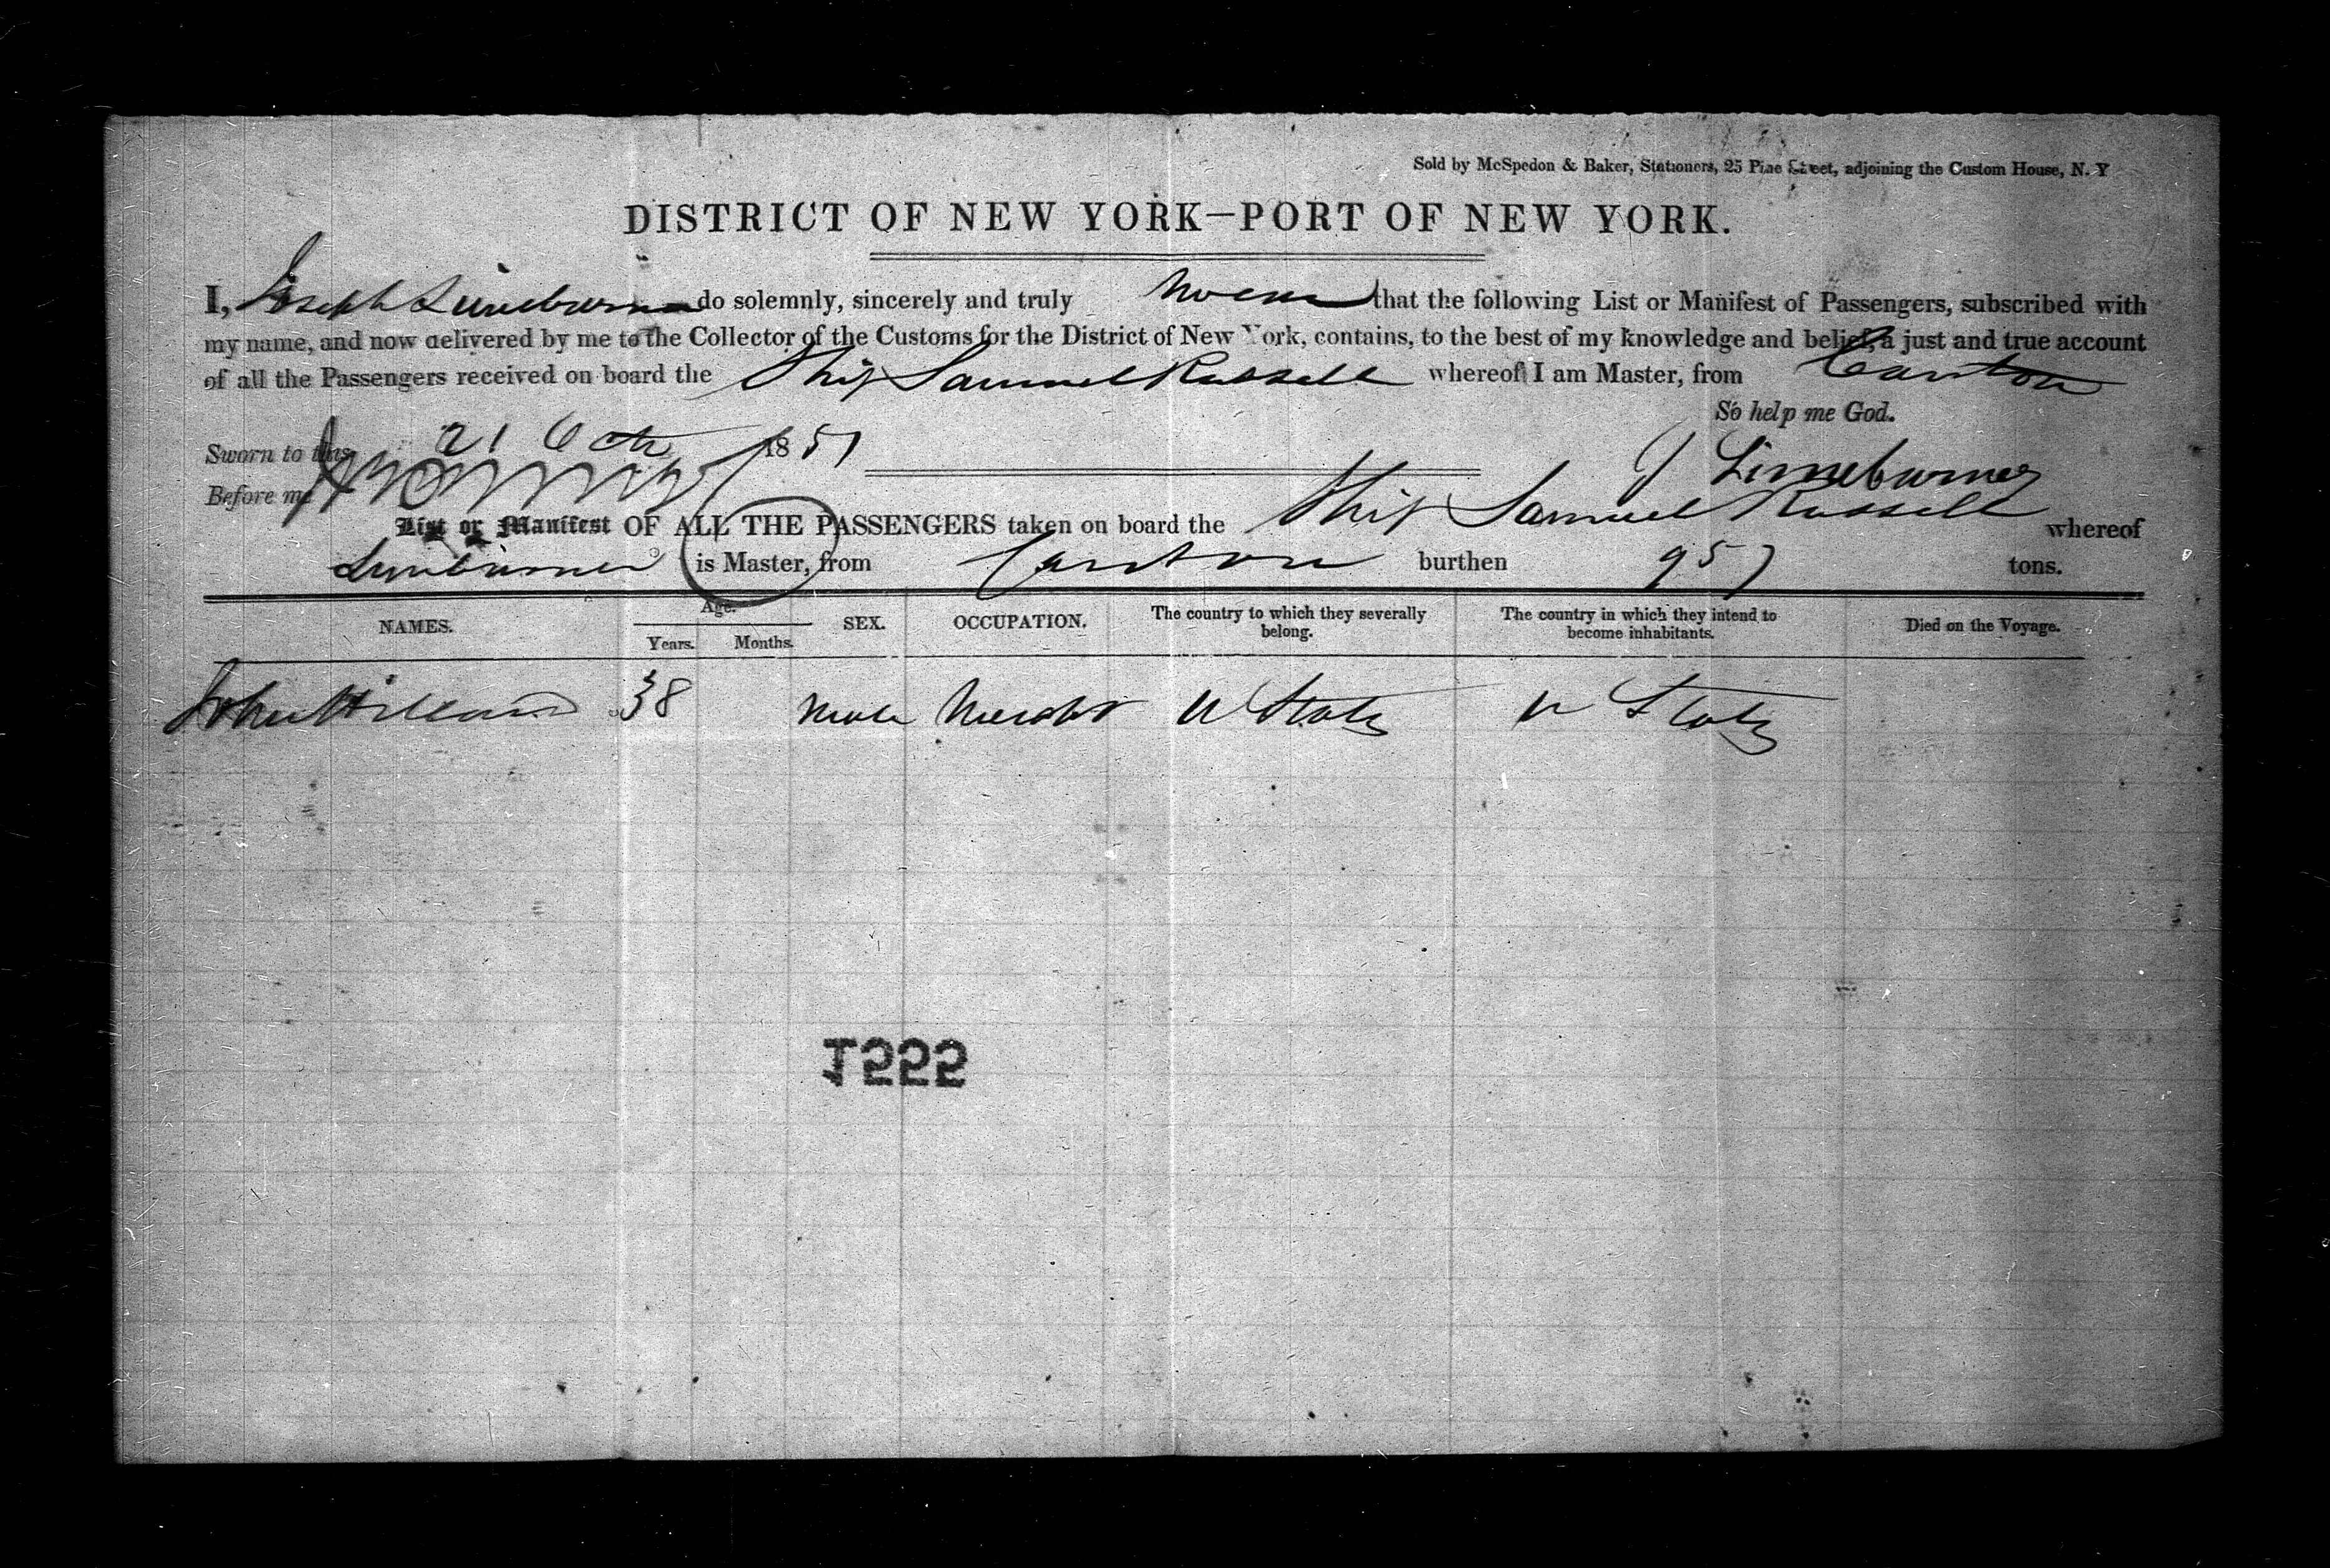 Sold by McSpedon & Baker, Stationers, 25 Pine Street, adjoining the Custom House, N. Y
DISTRICT OF NEW YORK—PORT OF NEW YORK.
I, Joseph Limeburner do solemnly, sincerely and truly swear that the following List or Manifest of Passengers, subscribed with
my name, and now delivered by me to the Collector of the Customs for the District of New York, contains, to the best of my knowledge and belief, a just and true account
of all the Passengers received on board the Ship Samuel Russell whereof I am Master, from Canton
So help me God.
Sworn to this 21 Octr 1851
J Limeburner
Before me
List or Manifest OF ALL THE PASSENGERS taken on board the Ship Samuel Russell whereof
Limeburner is Master, from Canton burthen 957 tons.
NAMES. Age. Years. Months. SEX. OCCUPATION. The country to which they severally belong. The country in which they intend to become inhabitants. Died on the Voyage.
John 38 Male Mercht U States U States
1555